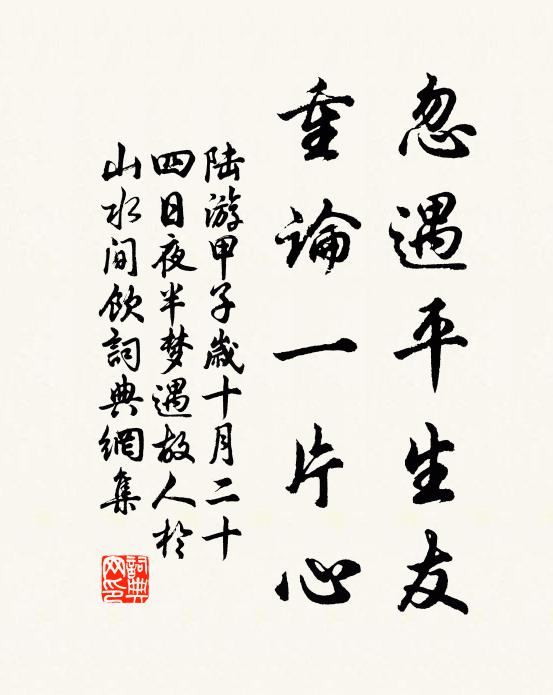 忽遇平生友
重論一片心
陆游甲子歲十月二十
四日夜半梦遇故人於
山水间飲詞典網集
詞典
网印